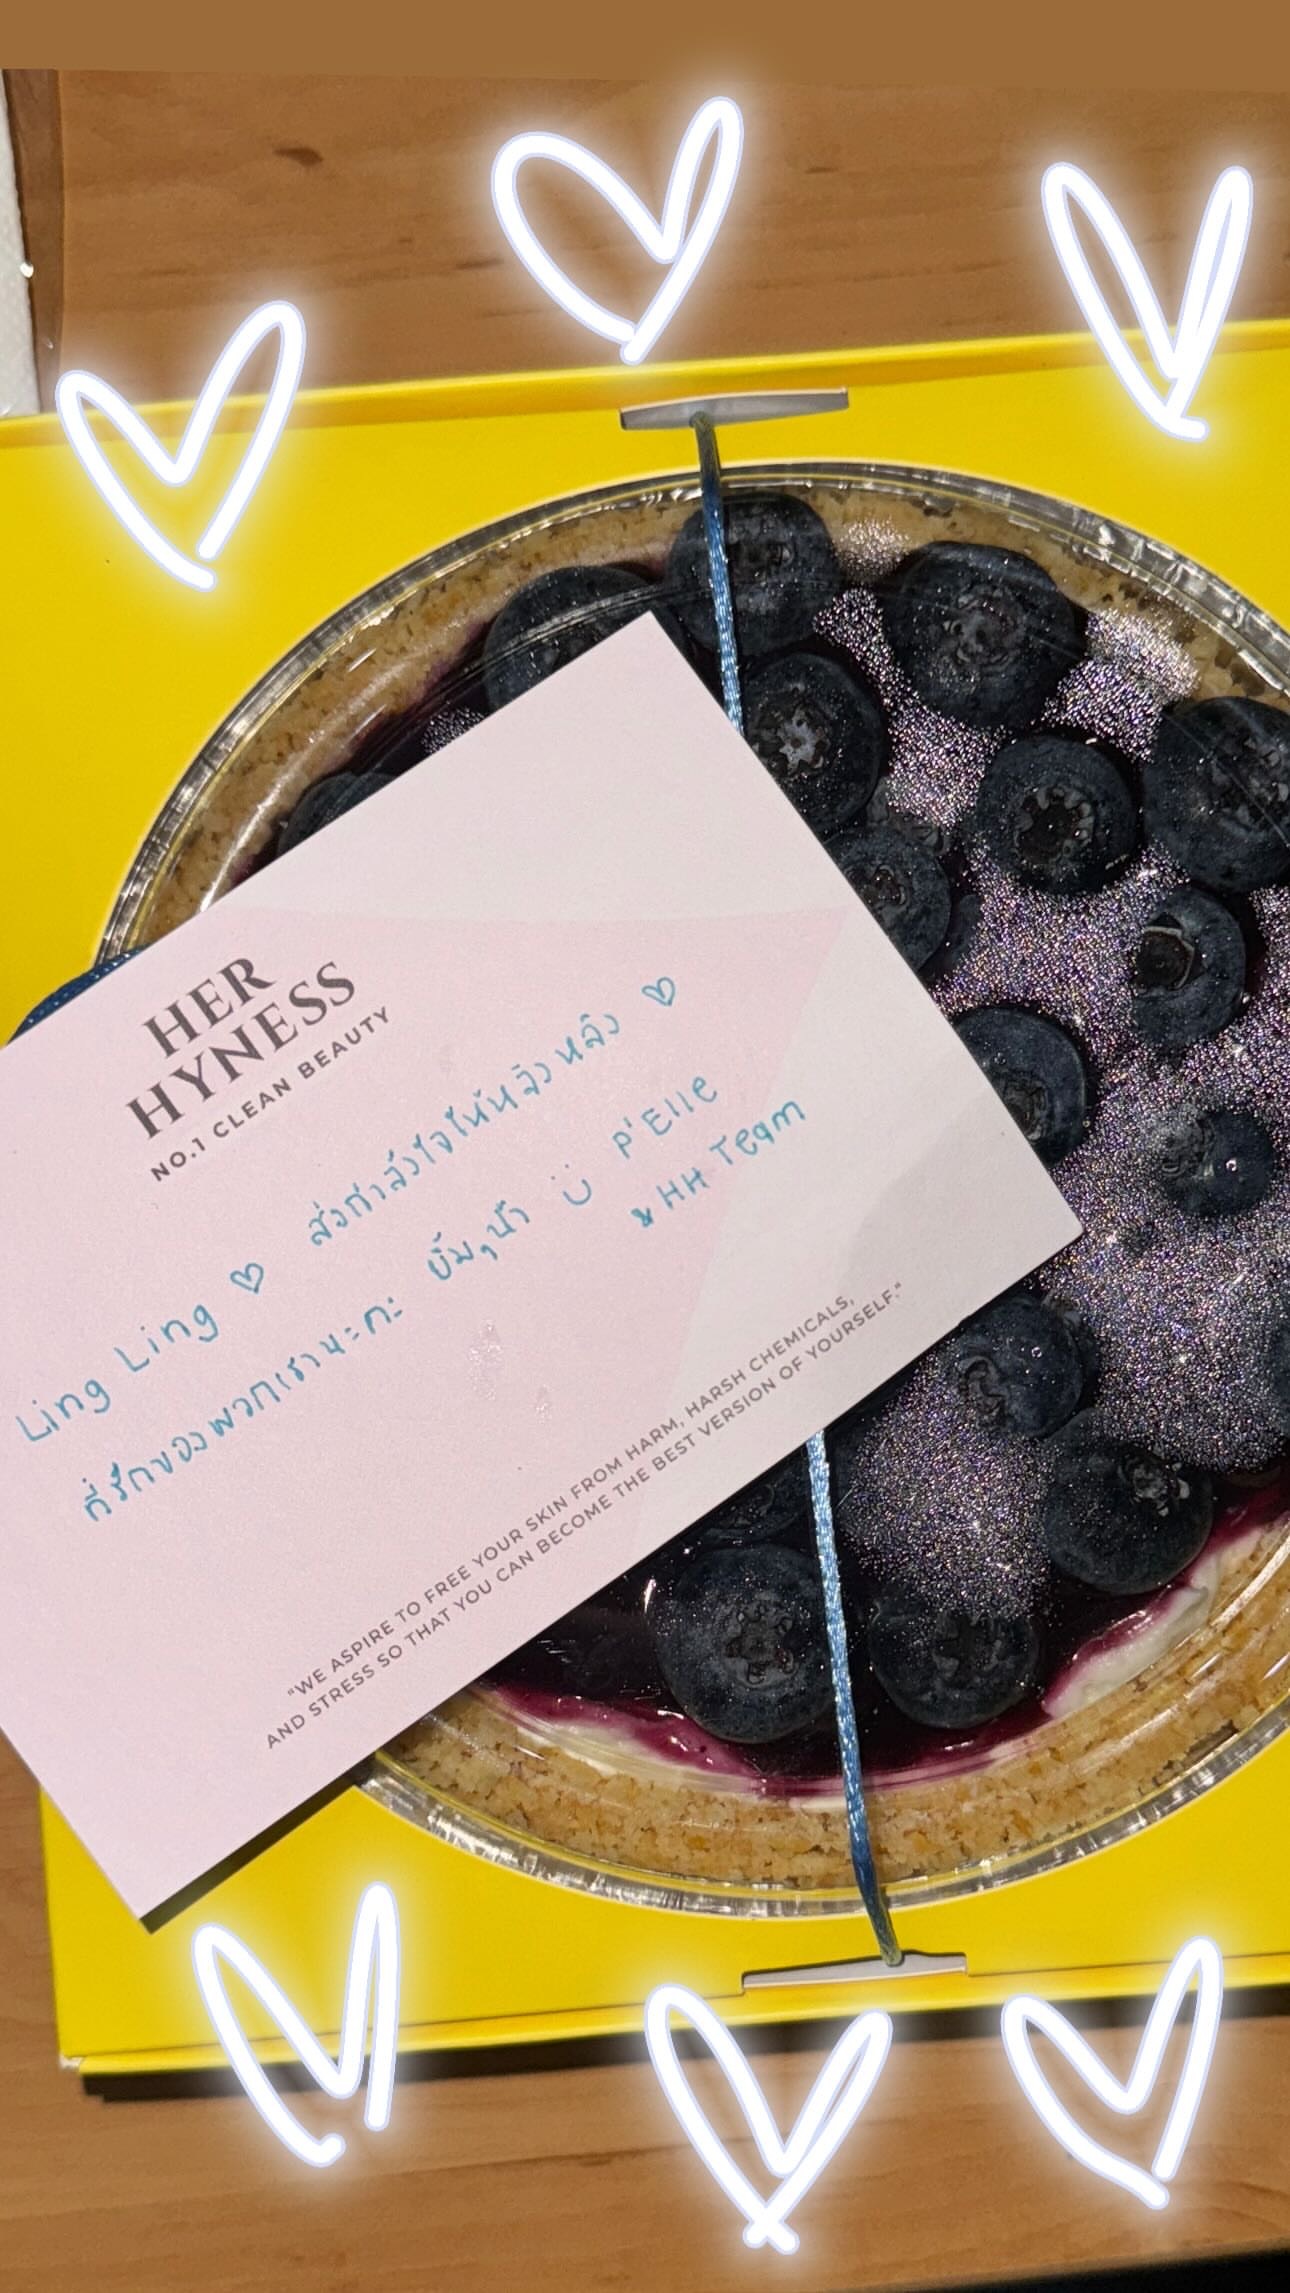 HER
HYNESS
NO.1 CLEAN BEAUTY
Ling Ling ♡ ส่งกำลังใจให้หลิงหลิง ♡
ที่รักของพวกเรานะคะ ยิ้มๆน้า ü P'Elle
HH Team
"WE ASPIRE TO FREE YOUR SKIN FROM HARM, HARSH CHEMICALS,
AND STRESS SO THAT YOU CAN BECOME THE BEST VERSION OF YOURSELF."